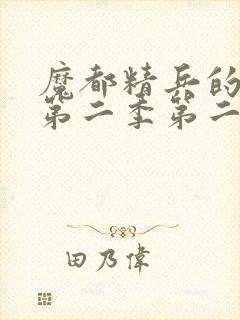 魔都精兵的
第二季第二
田乃偉